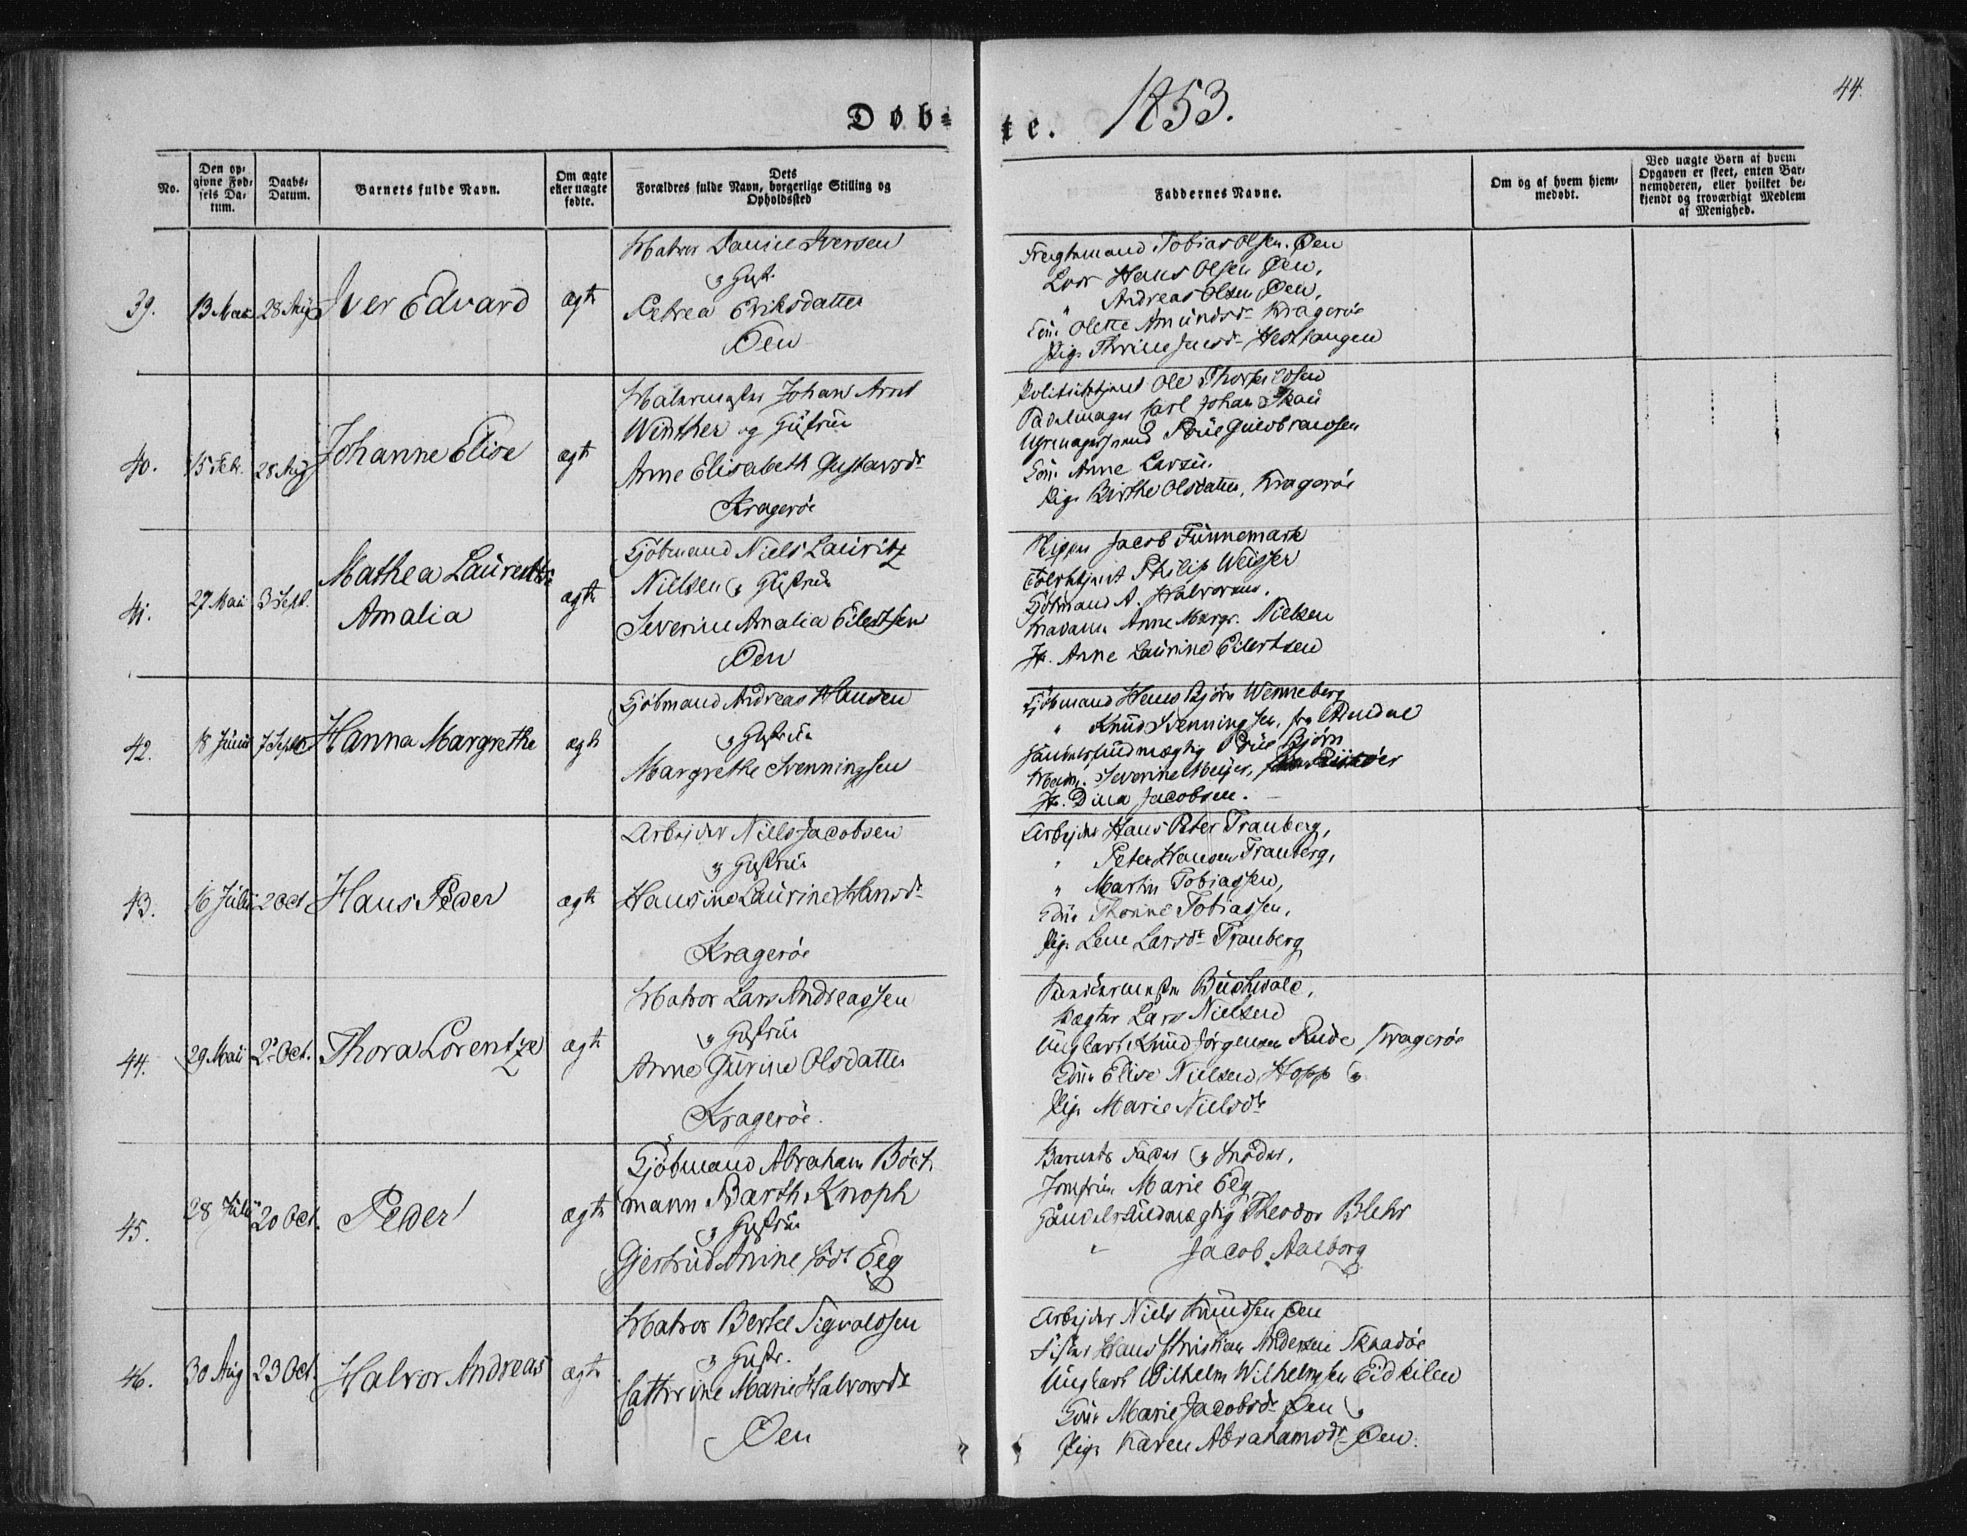 Døb-
te. 1853.
44.
No.
Den op-
givne Fød-
sels Da-
tum.
Daabs-
Datum.
Barnets fulde Navn.
Om ægte
eller uægte
fødte.
Dets
Forældres fulde Navn, borgerlige Stilling og
Opholdssted
Faddernes Navne.
Om og af hvem hjem-
medøbt.
Ved uægte Børn af hvem
Opgaven er skeet, enten Bar-
nemoderen, eller hvilket be-
kjendt og troværdigt Medlem
af Menighed.
39.
28 Aug
Iver Edvard
ægte
Matros Daniel Iversen
og Hustr.
Petrea Eriksdatter
Øen
Tobias Olsen. Øen
Hans Olsen Øen,
" Andreas Olsen Øen,
Olette Amundsdr Kragerøe
Pige
40.
15 Febr.
28 Aug
Johanne Elise
ægte
Johan Arnt
Winther og Hustrue
Anne Elisabeth Gustavsdr
Kragerøe
Ole
Carl Johan
Anne
Pige Birthe Olsdatter, Kragerøe
41.
27 Mai
3 Sept.
Mathea Laurentze
Amalia
ægte
Kjøbmand Niels Lauritz
Nielsen og Hustrue
Severine Amalia Eilertsen
Øen
Jacob Finnemark
Philip
Kjøbmand A. Halvorsen,
Madame Anne Margr. Nielsen
Jfr. Anne Laurine Eilertsen
42.
18 Juni
7 Sept
Hanna Margrethe
ægte
Kjøbmand Andreas Hansen
og Hustrue
Margrethe Svenningsen
Kjøbmand Hans Bjørn Wenneberg
" Knud Svenningsen, fra
Handelsfuldmægtig Bjørn
Severine Meijer,
Jfr. Dina Jacobsen.
43.
16 Juli
2 Oct
Hans Peder
ægte
Arbejder Niels Jacobsen
og Hustrue
Hansine Laurine Hansdr
Kragerøe
Arbejder Hans Peter Tranberg,
" Peter Hansen Tranberg,
" Martin Tobiassen,
Tobiassen,
Pige Lene Larsdr Tranberg
44.
29 Mai
2 Oct.
Thora Lorentze
ægte
Matros Lars Andreassen
og Hustrue
Anne Gurine Olsdatter
Kragerøe.
Buchwald,
Lars Nielsen
Ungkarl Knud Jørgensen Kragerøe
Elise Nielsen, Hopp og
Pige Marie Nielsdr
45.
28 Juli
20 Oct.
Peder
ægte
Kjøbmand Abraham Böch-
mann Barth Knoph
og Hustrue
Gjertrud Anine født Eeg
Barnets Fader og Moder,
Jomfrue Marie Eeg
Handelsfuldmægtig Theodor Blehr
" Jacob Aalborg
46.
30 Aug
23 Oct.
Halvor Andreas
ægte
Matros Bertel Sigvaldsen
og Hustr.
Cathrine Marie Halvorsdr
Øen
Arbejder Niels Knudsen Øen
Fisker Hans Christian Andersen Skaadøe
Ungkarl Wilhelm Wilhelmsen Eidkilen
Marie Jacobsdr Øen og
Pige Karen Abrahamsdr Øen.